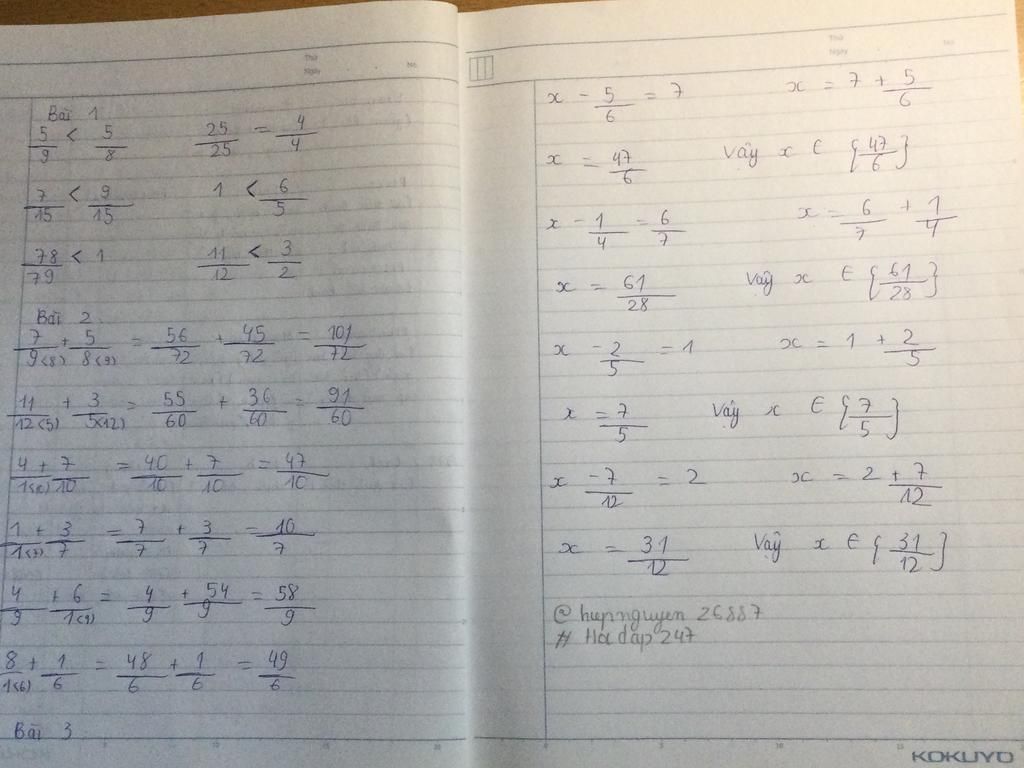 Thứ
Ngày
No.
Bài 1
5/9 < 5/8    25/25 = 4/4
7/15 < 9/15    1 < 6/5
78/79 < 1    11/12 < 3/2
Bài 2
7/9(8) + 5/8(9) = 56/72 + 45/72 = 101/72
11/12(5) + 3/5(12) = 55/60 + 36/60 = 91/60
4/1(10) + 7/10 = 40/10 + 7/10 = 47/10
1/1(7) + 3/7 = 7/7 + 3/7 = 10/7
4/9 + 6/1(9) = 4/9 + 54/9 = 58/9
8/1(6) + 1/6 = 48/6 + 1/6 = 49/6
Bài 3
Thứ
Ngày
No.
x - 5/6 = 7    x = 7 + 5/6
x = 47/6    Vậy x ∈ {47/6}
x - 1/4 = 6/7    x = 6/7 + 1/4
x = 61/28    Vậy x ∈ {61/28}
x - 2/5 = 1    x = 1 + 2/5
x = 7/5    Vậy x ∈ {7/5}
x - 7/12 = 2    x = 2 + 7/12
x = 31/12    Vậy x ∈ {31/12}
@ hiepnguyen 26887
# Hoi dap 247
KOKUYO